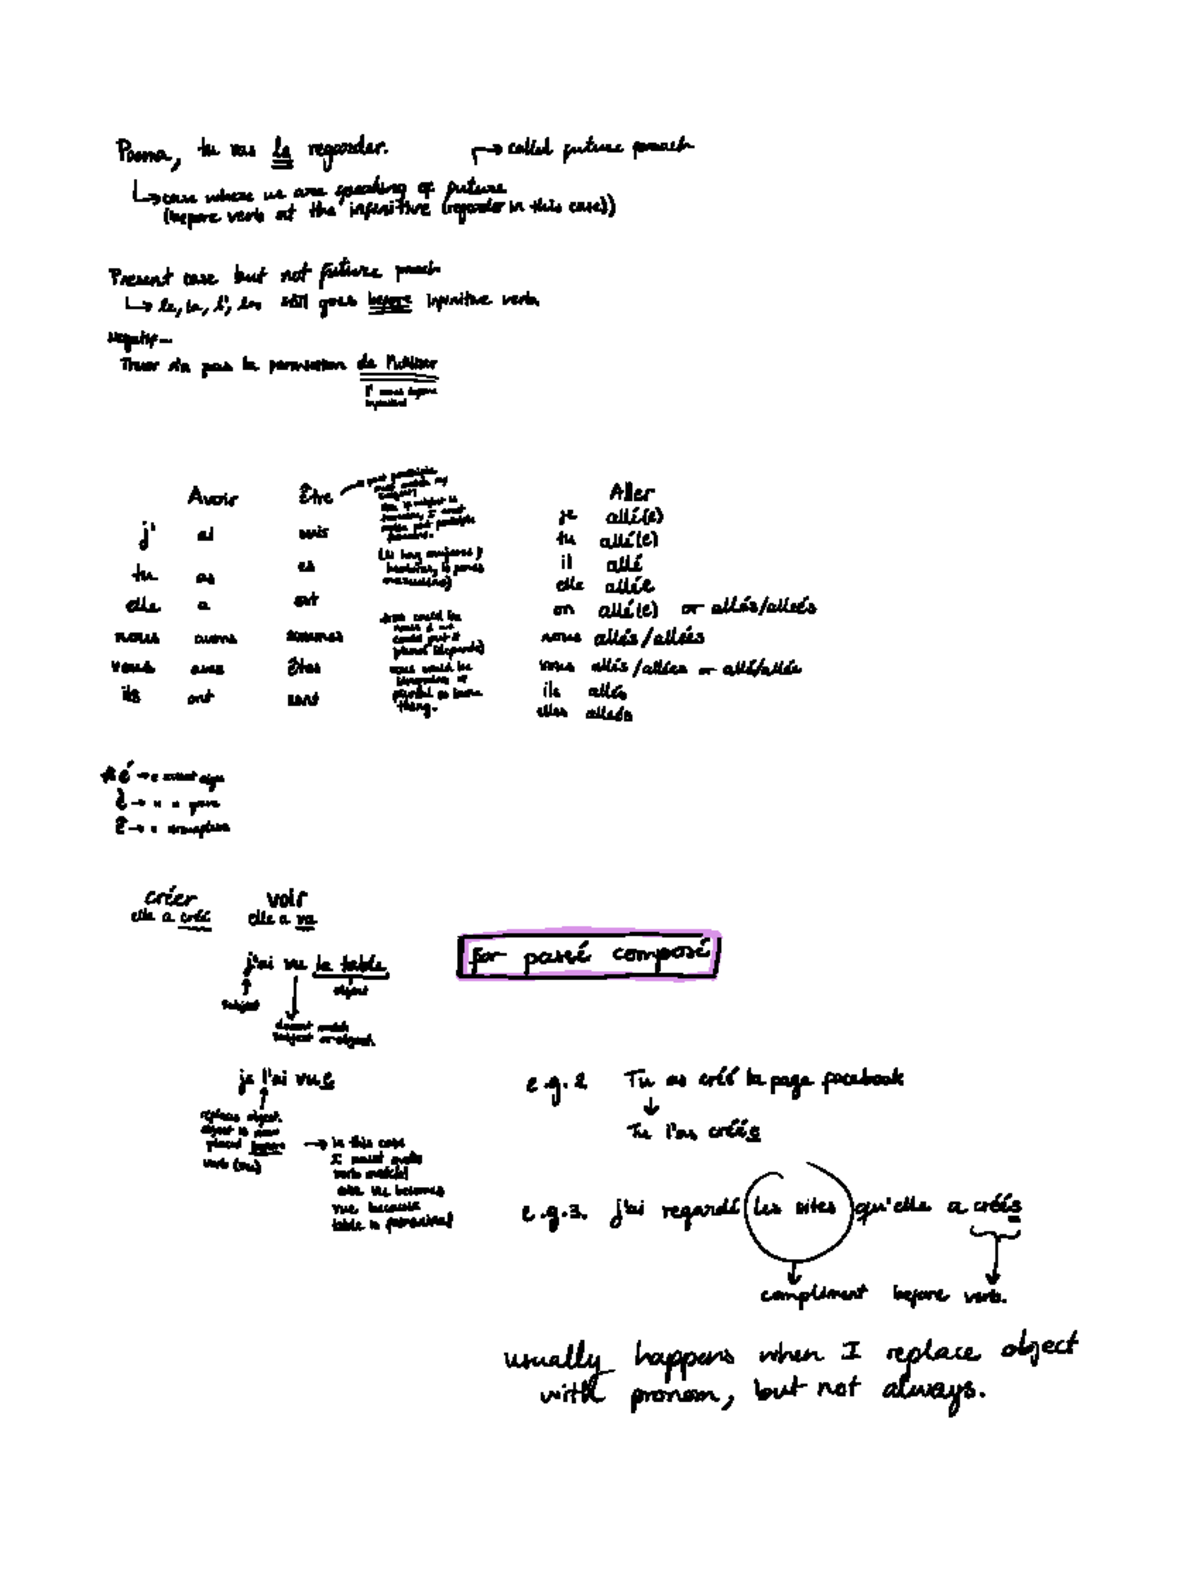 tu vas le regarder.
→ called future proach
↳ case where we are speaking of future
(before verb at the infinitive (regarder in this case))
Present case but not future proch
↳ le, la, l', les still goes before infinitive verb.
Negatif—
n'a pas la permission de l'utiliser
l' before
Avoir être Aller
past participle
must match my
subject!
feminine, I must
make past participle
feminine.
j' ai suis
tu as es
elle a est
nous avons sommes
vous avez êtes
ils ont sont
could be
could put it
plural (depends)
vous would be
plural so same
thing.
je allé(e)
tu allé(e)
il allé
elle allée
on allé(e) or allés/allées
nous allés/allées
vous allés/allées or allé/allée
ils allés
elles allées
* é → e accent aigu
è → " "
ê → "
créer voir
elle a créé elle a vu
for passé composé
j'ai vu la table
subject object
doesnt match
subject or object.
je l'ai vue
replaces object.
object is now
placed before
verb (vu)
→ in this case
I must make
verb match!
vu becomes
vue because
table is feminine!
e.g. 2 Tu as créé la page facebook
↓
Tu l'as créée
e.g. 3. j'ai regardé les sites qu'elle a créés
compliment before verb.
usually happens when I replace object
with pronom, but not always.